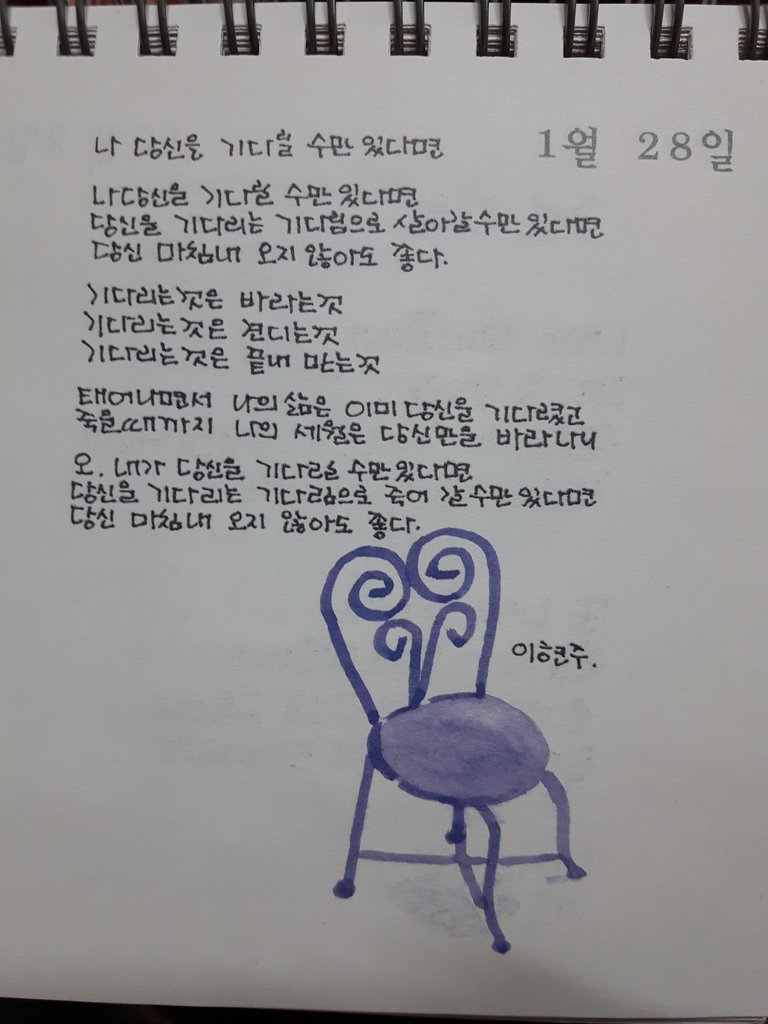 1월 28일
나 당신을 기다릴 수만 있다면
나당신을 기다릴 수만 있다면
당신을 기다리는 기다림으로 살아갈수만 있다면
당신 마침내 오지 않아도 좋다.
기다리는것은 바라는것
기다리는것은 견디는것
기다리는것은 끝내 만는것
태어나면서 나의 삶은 이미 당신을 기다렸고
죽을때까지 나의 세월은 당신만을 바라나니
오. 내가 당신을 기다릴 수만 있다면
당신을 기다리는 기다림으로 죽어 갈수만 있다면
당신 마침내 오지 않아도 좋다.
이현주.